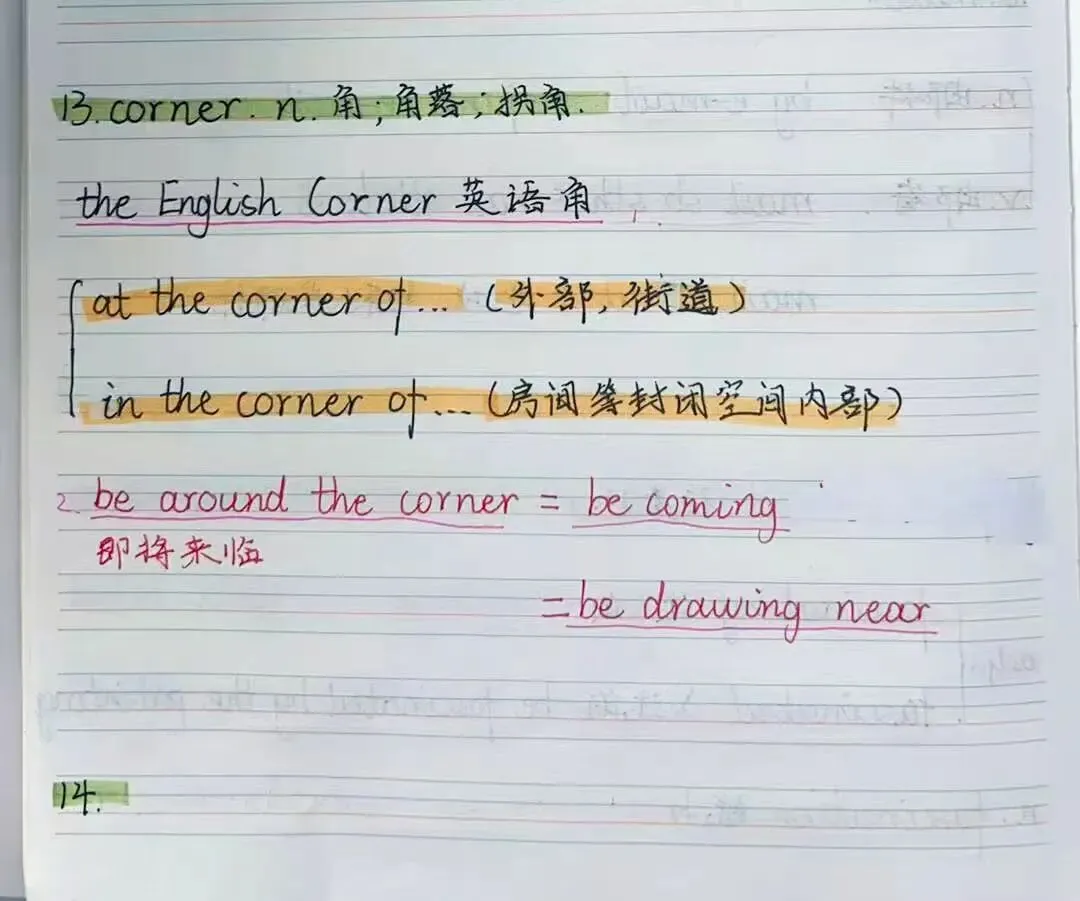 13.corner. n. 角;角落;拐角.
the English Corner 英语角
at the corner of... (外部,街道)
in the corner of... (房间等封闭空间内部)
2. be around the corner = be coming
即将来临
= be drawing near
14.